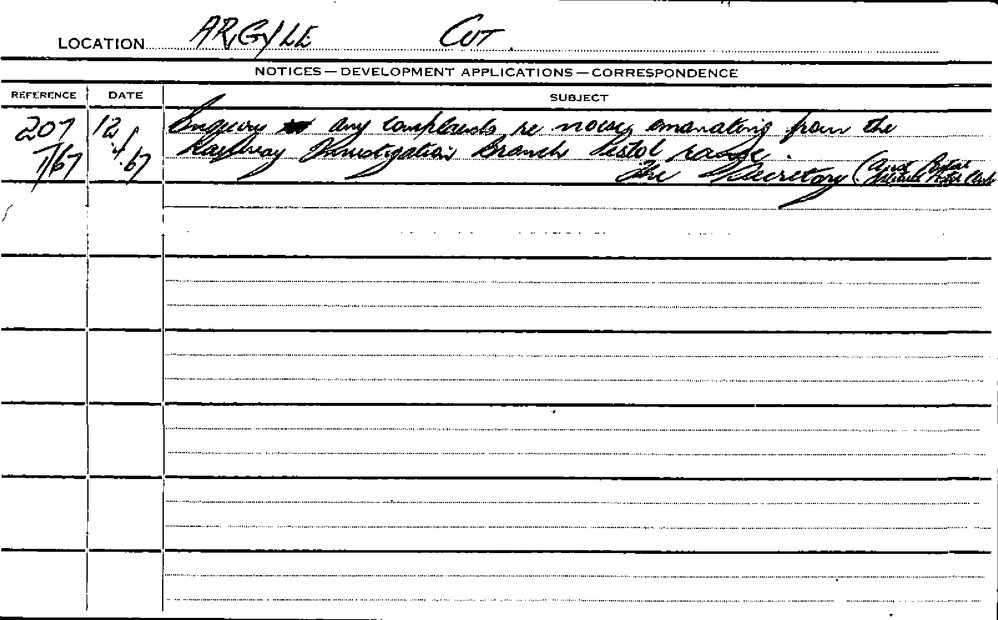 LOCATION ARGYLE CUT
NOTICES—DEVELOPMENT APPLICATIONS—CORRESPONDENCE
REFERENCE DATE SUBJECT
207 12 Enquiry any complaints re noise emanating from the
7/67 4.67 Railway Investigation Branch Pistol range.
The Secretary